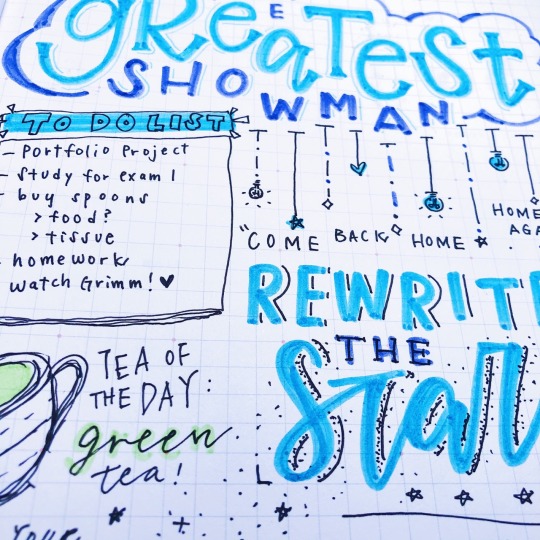 E
GREATEST
SHOWMAN
TO DO LIST
- Portfolio Project
- Study for exam 1
- buy spoons
> food?
> tissue
- homework
watch Grimm! ♥
"COME BACK HOME
HOME
REWRITE
THE
Sta
TEA OF
THE DAY:
green
tea!
Your